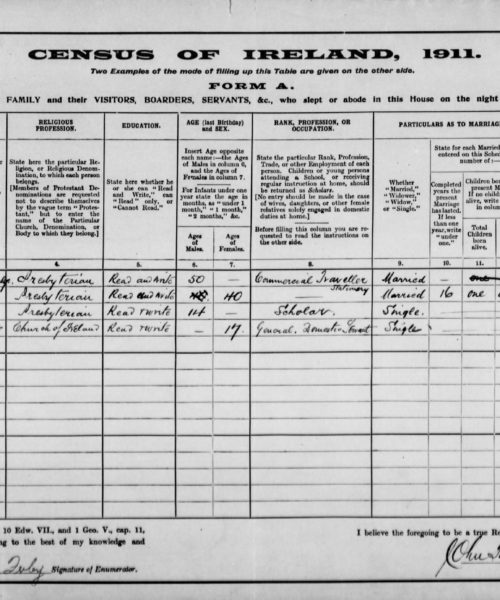 CENSUS OF IRELAND, 1911.
Two Examples of the mode of filling up this Table are given on the other side.
FORM A.
FAMILY and their VISITORS, BOARDERS, SERVANTS, &c., who slept or abode in this House on the night
RELIGIOUS PROFESSION.
EDUCATION.
AGE (last Birthday) and SEX.
RANK, PROFESSION, OR OCCUPATION.
PARTICULARS AS TO MARRIAGE
State here the particular Religion, or Religious Denomination, to which each person belongs.
[Members of Protestant Denominations are requested not to describe themselves by the vague term "Protestant," but to enter the name of the Particular Church, Denomination, or Body to which they belong.]
State here whether he or she can "Read and Write," can "Read" only, or "Cannot Read."
Insert Age opposite each name:—the Ages of Males in column 6, and the Ages of Females in column 7.
For Infants under one year state the age in months, as "under 1 month," "1 month," "2 months," &c.
Ages of Males.
Ages of Females.
State the particular Rank, Profession, Trade, or other Employment of each person. Children or young persons attending a School, or receiving regular instruction at home, should be returned as Scholars.
[No entry should be made in the case of wives, daughters, or other female relatives solely engaged in domestic duties at home.]
Before filling this column you are requested to read the instructions on the other side.
Whether "Married," "Widower," "Widow," or "Single."
State for each Married
entered on this Sched
number of:—
Completed years the present Marriage has lasted. If less than one year, write "under one."
Children born
present M
If no childr
alive, write
in colum
Total Children born alive.
4.
5.
6.
7.
8.
9.
10.
11.
Presbyterian Read and Write 50 — Commercial Traveller Married — one
Stationery
Presbyterian Read and Write 40 Married 16 one
Presbyterian Read & Write 14 — Scholar. Single.
Church of Ireland Read & Write — 17. General Domestic Servant Single
10 Edw. VII., and 1 Geo. V., cap. 11,
ng to the best of my knowledge and
Signature of Enumerator.
I believe the foregoing to be a true Re
John